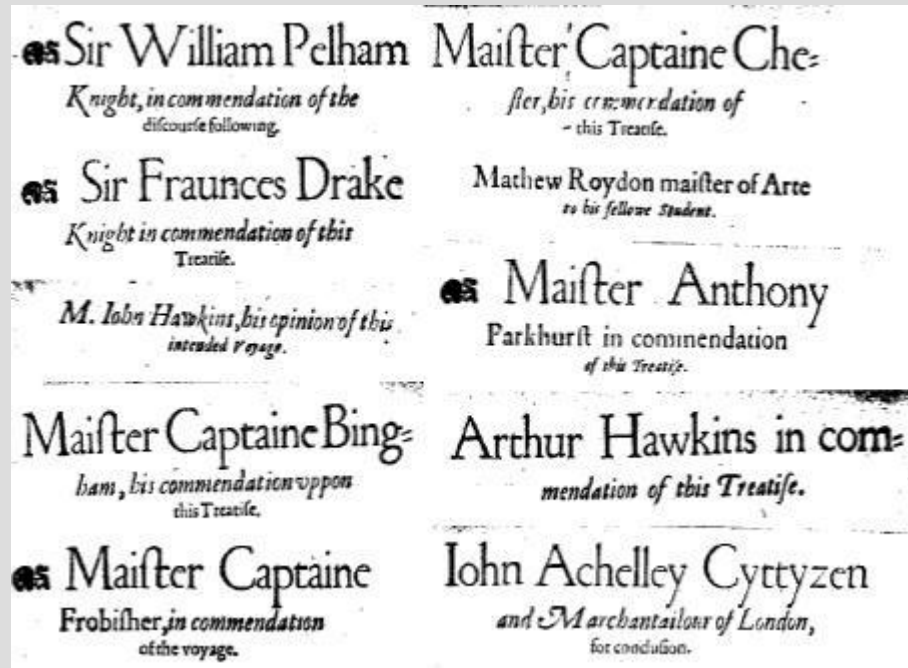 Sir William Pelham
Knight, in commendation of the
discourse following.
Sir Fraunces Drake
Knight in commendation of this
Treatise.
M. Iohn Hawkins, his opinion of this
intended Voyage.
Maiſter Captaine Bing=
ham, his commendation vppon
this Treatiſe.
Maiſter Captaine
Frobiſher, in commendation
of the voyage.
Maiſter Captaine Che=
ſter, his commendation of
this Treatiſe.
Mathew Roydon maiſter of Arte
to his fellowe Student.
Maiſter Anthony
Parkhurſt in commendation
of this Treatiſe.
Arthur Hawkins in com=
mendation of this Treatiſe.
Iohn Achelley Cyttyzen
and Marchantailour of London,
for concluſion.